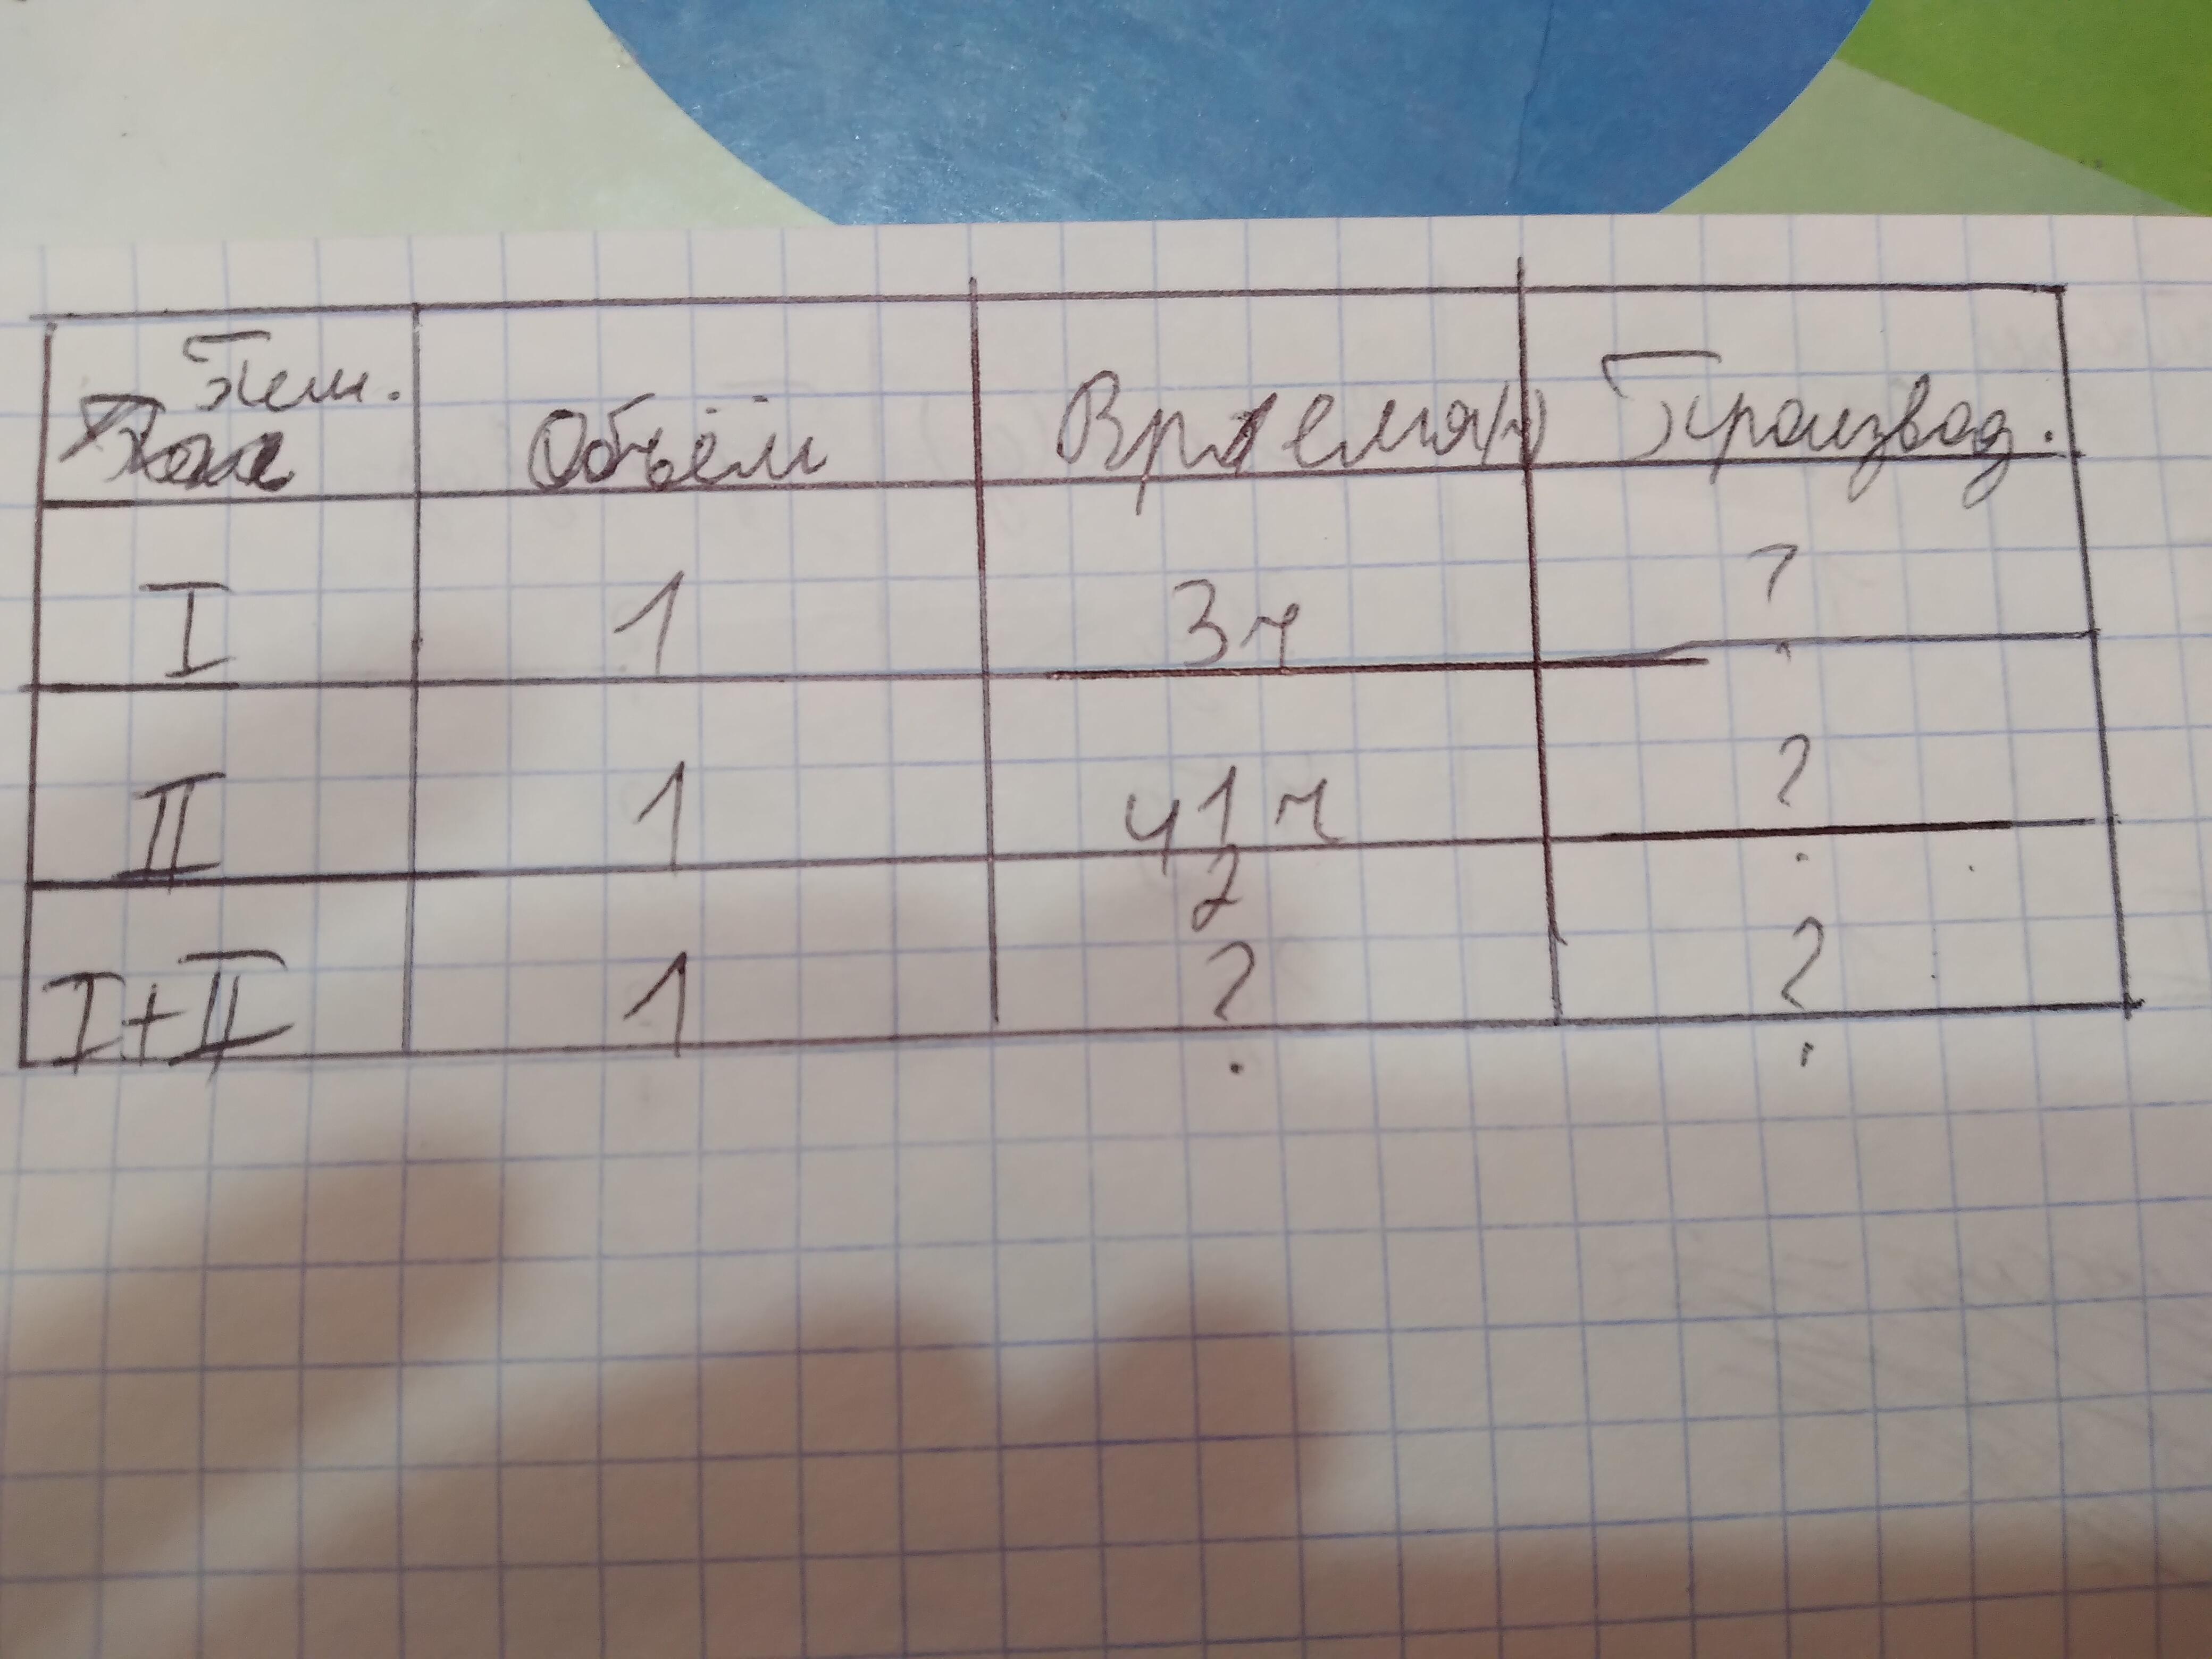 Объём Время(ч) Производ.
I 1 3ч ?
II 1 4 1/2 ч ?
I+II 1 ? ?